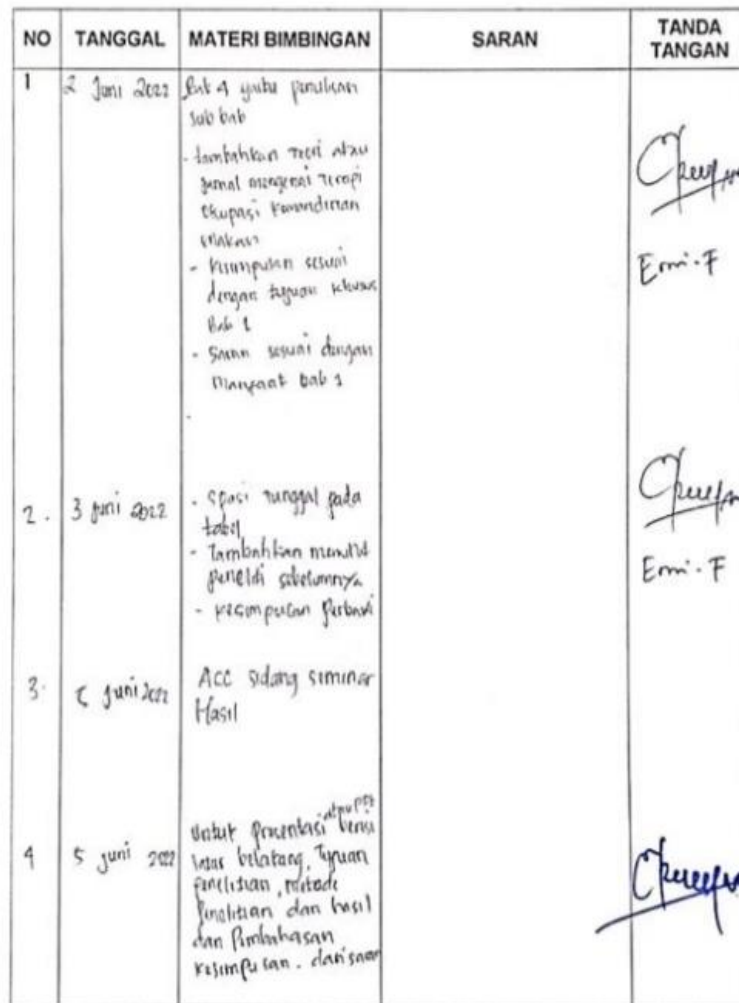 NO TANGGAL MATERI BIMBINGAN SARAN TANDA TANGAN
1 2 Juni 2022 Bab 4 yaitu penulisan
sub bab
- tambahkan teori atau
jurnal mengenai terapi
okupasi kemandirian
makan
- kesimpulan sesuai
dengan tujuan khusus
Bab 1
- Saran sesuai dengan
Manfaat bab 1
Erni.F
2. 3 juni 2022 - spasi tunggal pada
tabel
- Tambahkan
peneliti sebelumnya
- kesimpulan
Erni.F
3. juni 2022 ACC sidang seminar
Hasil
4 5 juni 2022 untuk presentasi atau PPt berisi
latar belakang, Tujuan
penelitian, metode
penelitian dan hasil
dan Pembahasan
kesimpulan. dan saran